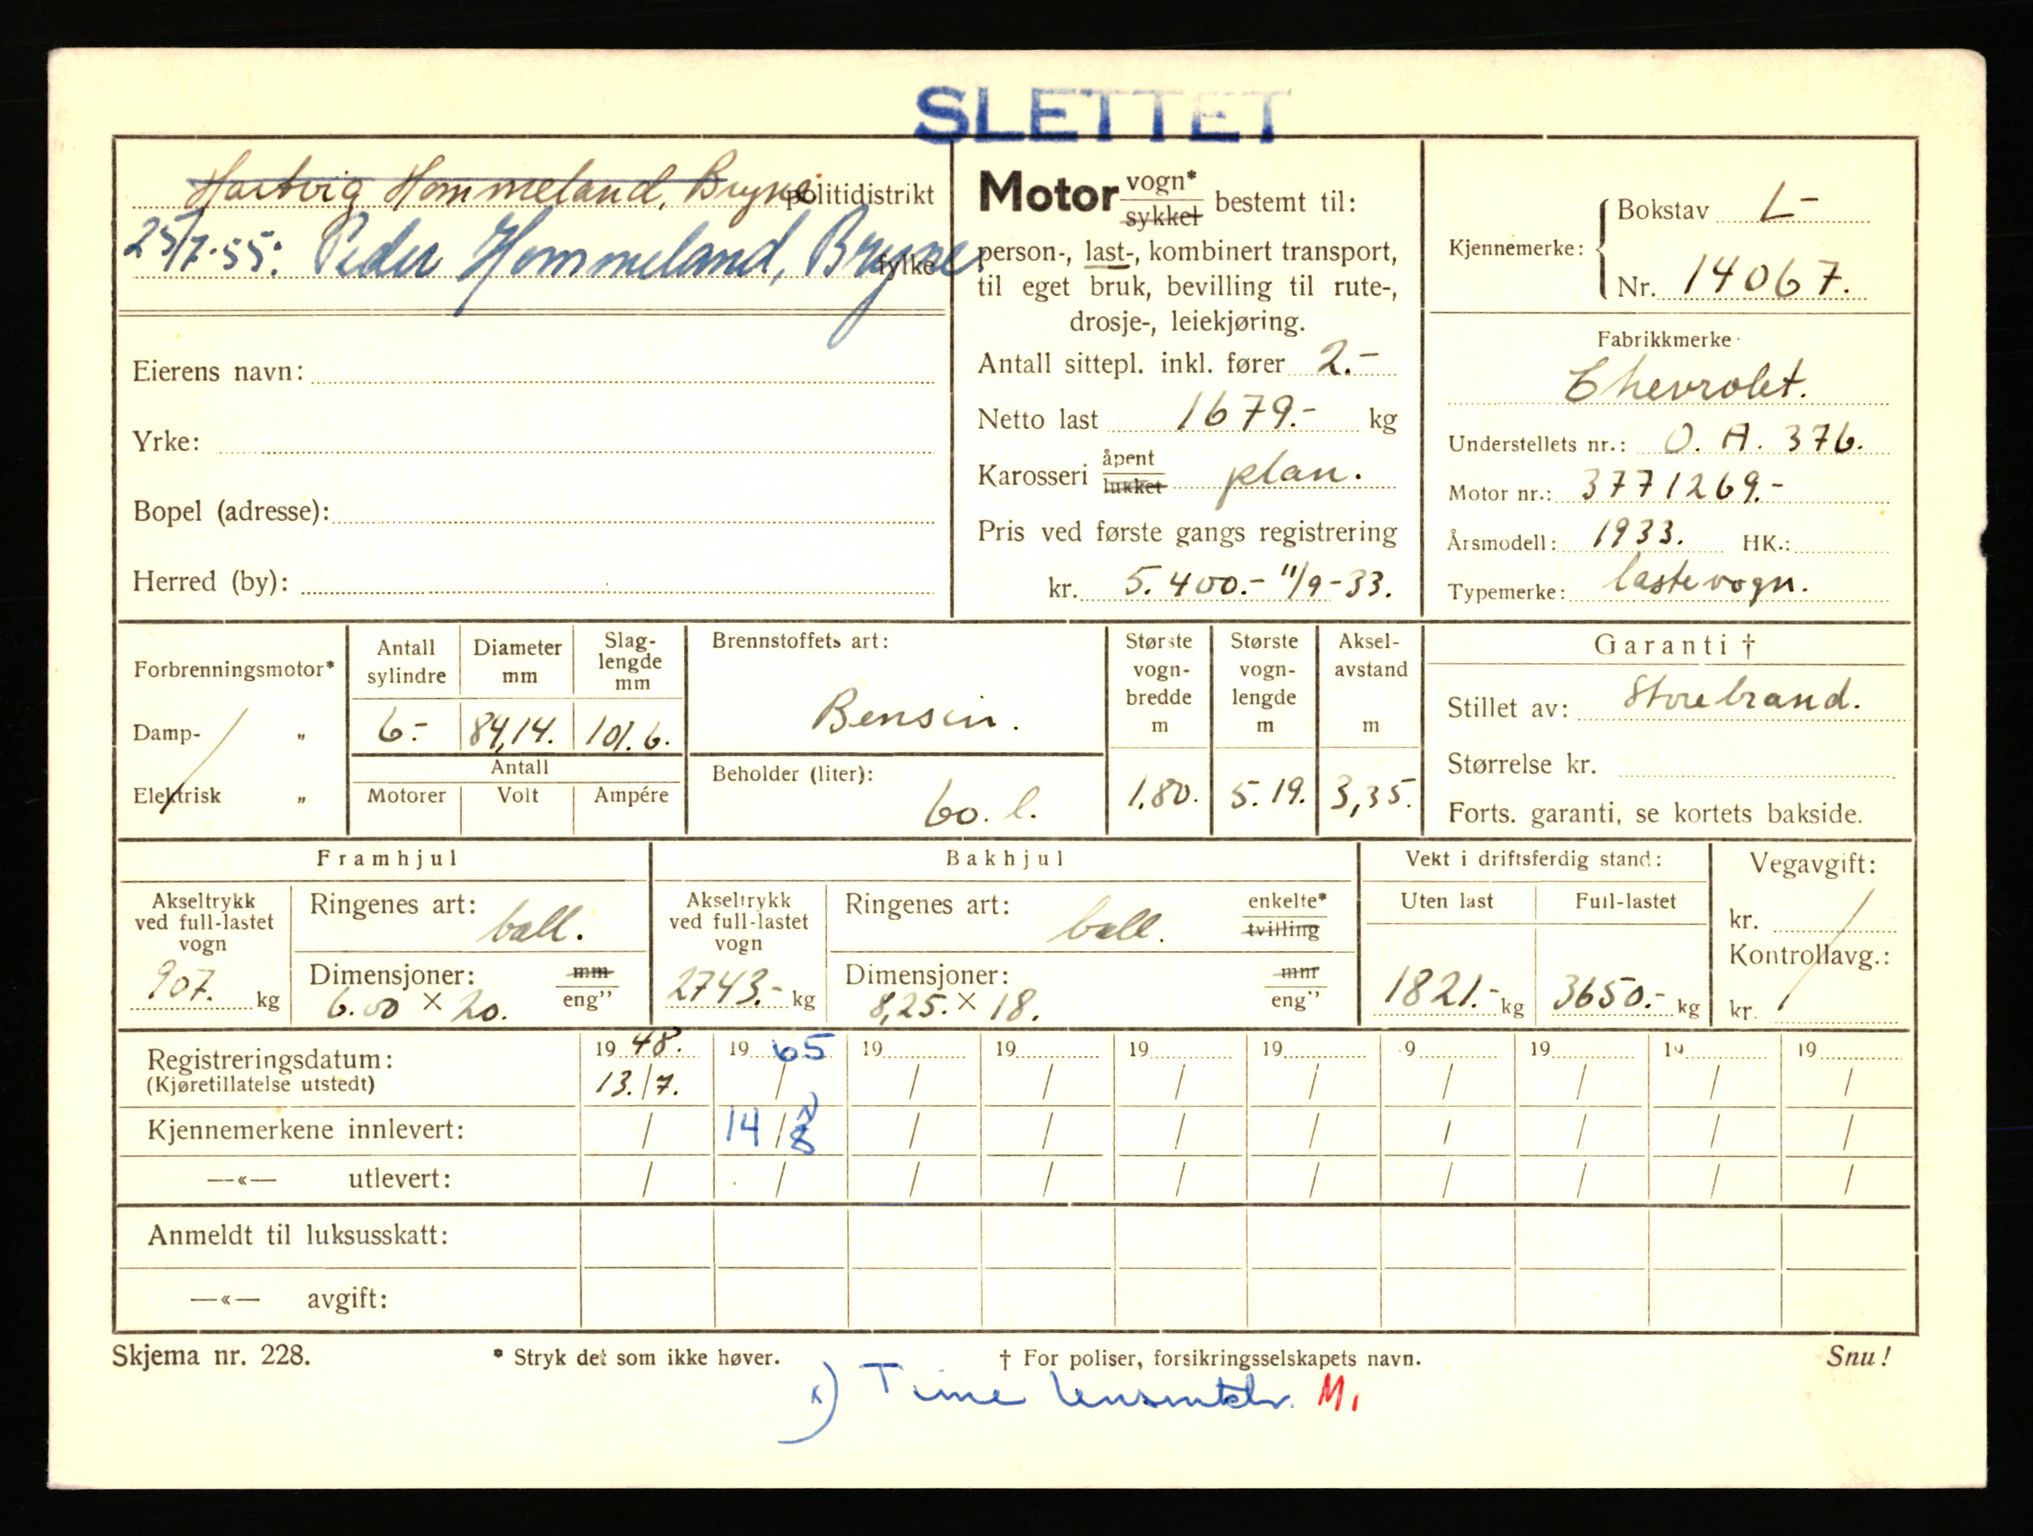 SLETTET
Hartvig Hommeland, Bryne politidistrikt
25/7-55: Peder Hommeland, Bryne. fylke
Eierens navn:
Yrke:
Bopel (adresse):
Herred (by):
Motor vogn* sykkel bestemt til:
person-, last-, kombinert transport,
til eget bruk, bevilling til rute-,
drosje-, leiekjøring.
Antall sittepl. inkl. fører 2.-
Netto last 1679.- kg
Karosseri åpent lukket plan.
Pris ved første gangs registrering
kr. 5.400.- 11/9-33.
Kjennemerke: Bokstav L-
Nr. 14067.
Fabrikkmerke
Chevrolet.
Understellets nr.: O. A. 376.
Motor nr.: 3771269.-
Årsmodell: 1933. HK.:
Typemerke: lastevogn.
Forbrenningsmotor*
Damp- „
Elektrisk „
Antall sylindre Diameter mm Slag-lengde mm
6.- 84,14. 101.6.
Antall
Motorer Volt Ampére
Brennstoffets art:
Bensin.
Beholder (liter):
60. l.
Største vogn-bredde m Største vogn-lengde m Aksel-avstand m
1.80. 5.19. 3,35.
Garanti †
Stillet av: Storebrand.
Størrelse kr.
Forts. garanti, se kortets bakside.
Framhjul
Akseltrykk ved full-lastet vogn
907. kg
Ringenes art: ball.
Dimensjoner: mm eng"
6.00 × 20.
Bakhjul
Akseltrykk ved full-lastet vogn
2743.- kg
Ringenes art: ball. enkelte* tvilling
Dimensjoner: mm eng"
8,25. × 18.
Vekt i driftsferdig stand:
Uten last Full-lastet
1821.- kg 3650.- kg
Vegavgift:
kr.
Kontrollavg.:
kr.
Registreringsdatum: 19 48. 19 65 19 19 19 19 9 19 19 19
(Kjøretillatelse utstedt) 13./7. / / / / / / / / /
Kjennemerkene innlevert: / 14/8 x) / / / / / / / /
—«— utlevert: / / / / / / / / / /
Anmeldt til luksusskatt:
—«— avgift:
Skjema nr. 228. * Stryk det som ikke høver. † For poliser, forsikringsselskapets navn. Snu!
x) Time lensmktr. M.